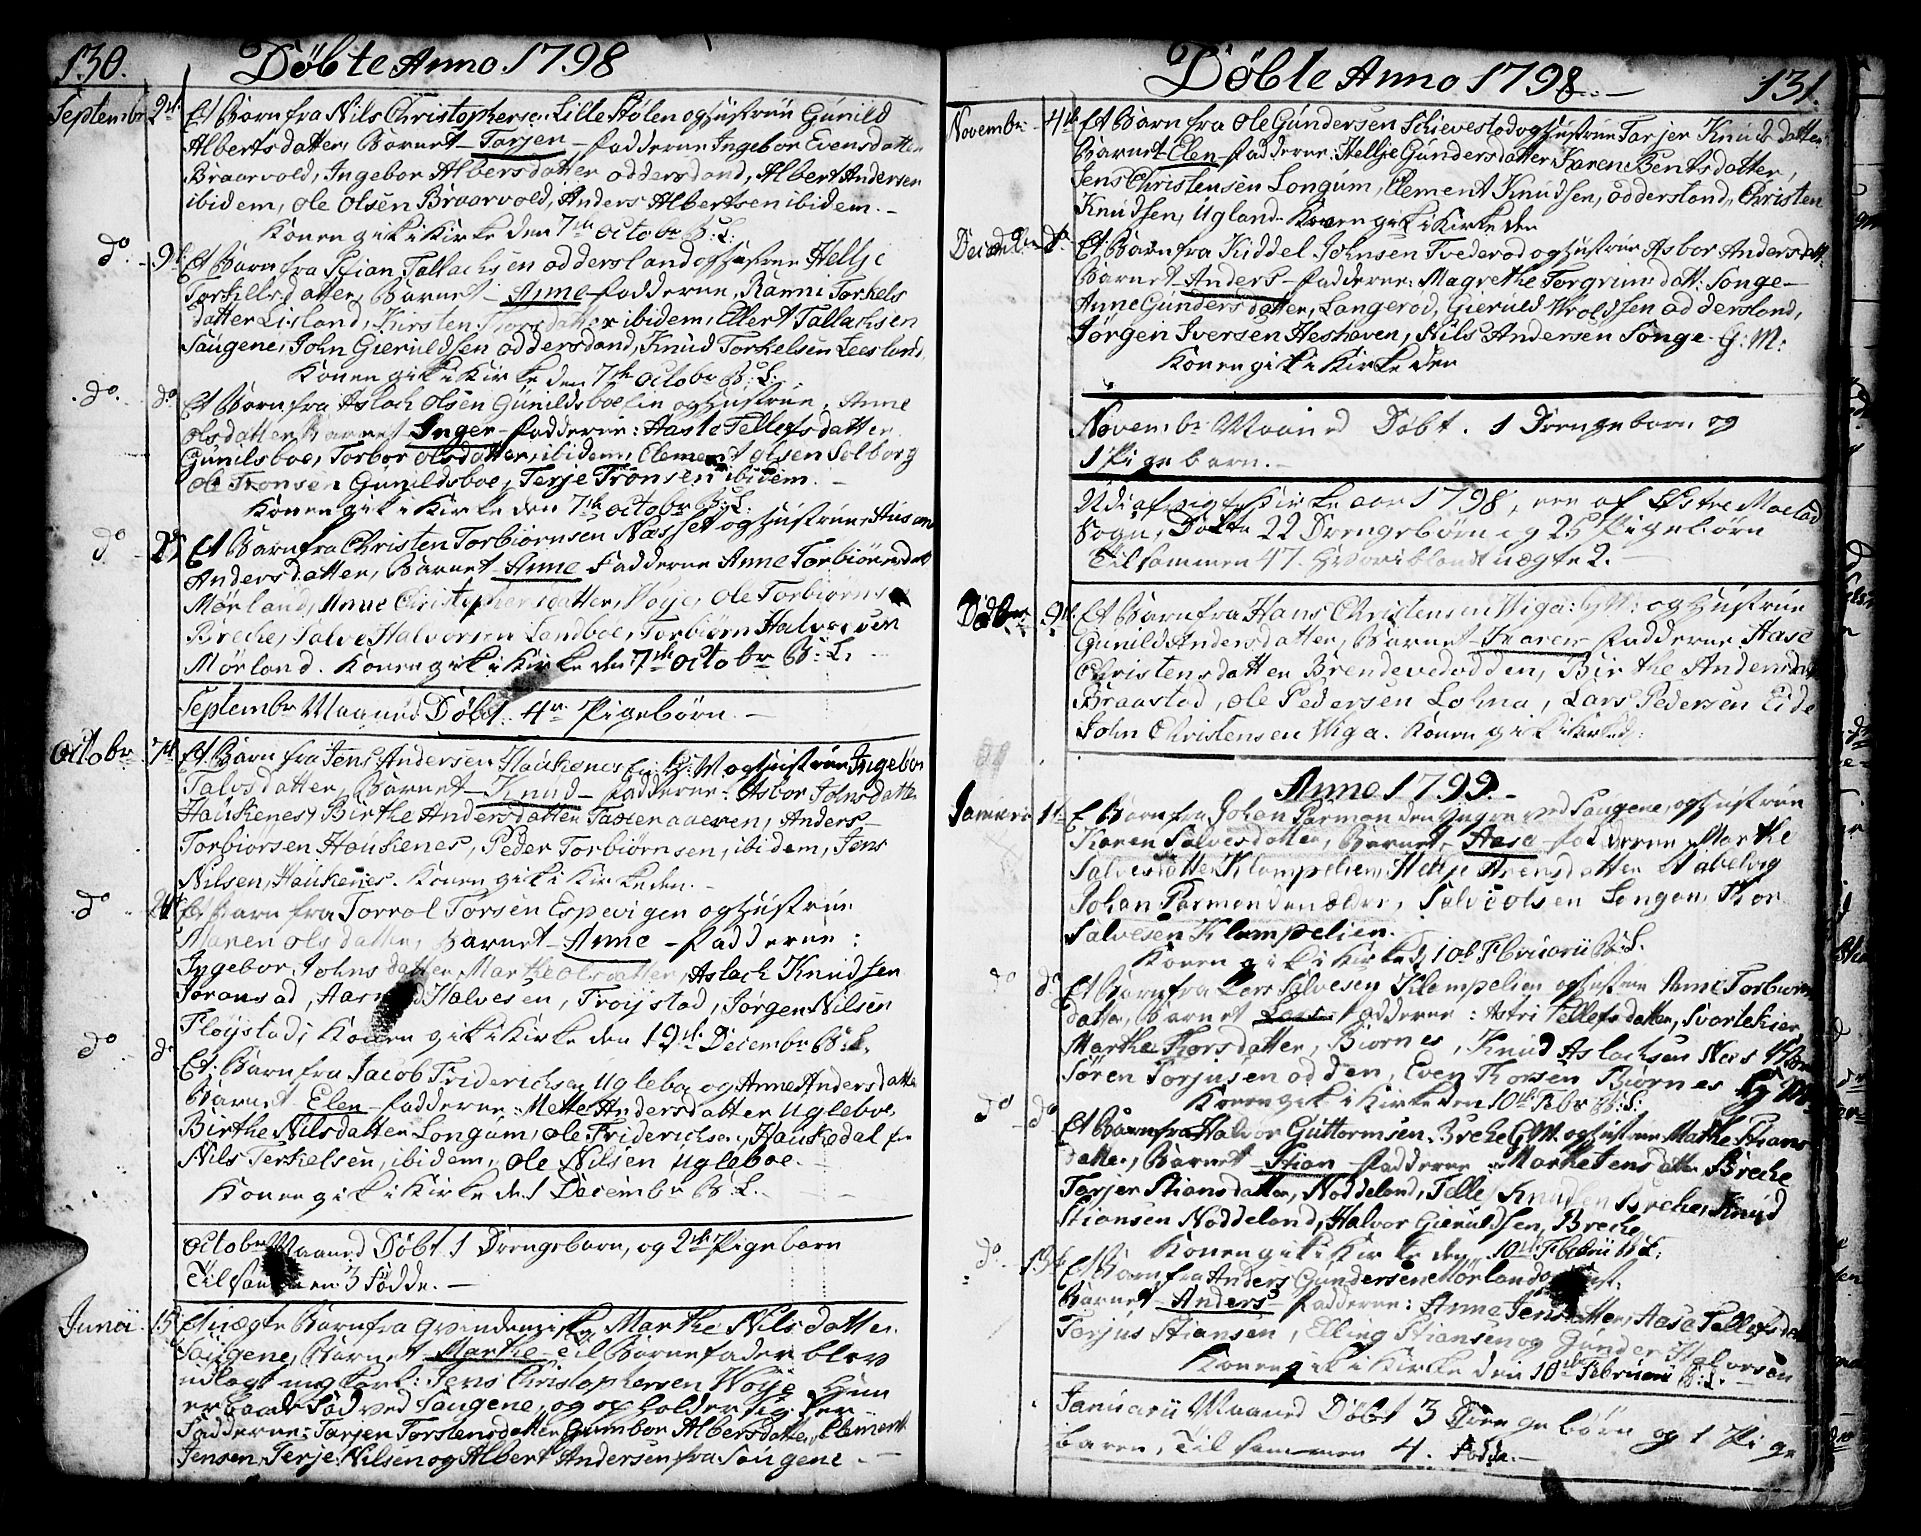 130. Döbte Anno 1798
Septembr 2de Et Barn fra Nils Christophersen Lille Hølen og Hustrue Gunild
Albertsdatter, Barnet Tarjen Fadderne Ingebor Evensdatter
Braarvold, Ingebor Albersdatter oddersland, Albert Andersen
ibidem, Ole Olsen Braarvold, Anders Albertsen ibidem.
Konen gik i Kirke den 7de octobr B: L:
do 9de Et Barn fra Stian Tallachsen oddersland og Hustrue Hellje
Torkillsdatter, Barnet Anne Fadderne, Ranni Torkels
datter Lisland, Kirsten Torsdatter ibidem, Ellert Tallachsen
Saugene, John Gieruldsen oddersland, Knud Torkelsen Leesland,
Konen gik i Kirke den 7de octobr B: L.
do do Et Barn fra Aslach Olsen Gunildsboe Lin og Hustrue, Anne
Olsdatter Barnet Inger Fadderne: Aaste Tellefsdatter
Gunilsboe, Torbor Olsdatter, ibidem, Clement Olsen Solborg
Ole Tronsen Gunildsboe, Terje Tronsen ibidem.
Konen gik i Kirke den 7de octobr B: L:
do Et Barn fra Christen Torbiørnsen Næsset og Hustrue
Andersdatter, Barnet Anne Fadderne Anne Torbiørnsdatt
Mørland, Anne Christophersdatter, Voje, Ole Torbiørnsen
Breche, Salve Halvorsen Landboe, Torbiørn Halvorsen
Mørland. Konen gik i Kirke den 7de octobr B: L.
Septembr Maaned Döbt 4re Pigebörn.
Octobr 7de Et Barn fra Jens Andersen Haukenes G: M og Hustrue Ingebor
Talvsdatter, Barnet Knud Fadderne: Asbor Johnsdatter
Haukenes, Birthe Andersdatter, Anders
Torbiørsen Haukenes, Peder Torbiørnsen, ibidem, Jens
Nilsen, Haukenes. Konen gik i Kirke den.
do Et Barn fra Torrol Torsen Espevigen og Hustrue
Maren Olsdatter, Barnet Anne Fadderne:
Ingebor Johnsdatter, Marthe Olsdatter, Aslach Knudsen
Halvesen, Frøystad, Jørgen Nilsen
Fløystad, Konen gik i Kirke den 19de Decembr B: L.
do do Et Barn fra Jacob Friderichsen Ugleboe og Anne Andersdatter
Barnet Elen Fadderne: Mette Andersdatter Ugleboe,
Birthe Nilsdatter Longum, Ole Friderichsen Haukedal
Nils Terkelsen, ibidem, Ole Nilsen Ugleboe.
Konen gik i Kirke de 1 Decembr B: L.
Octobr Maaned Döbt 1 Drengebarn, og 2de Pigebarn
Tilsammen 3 födde.
Junii 15 Et uægte Barn fra qvindemiske Marthe Nilsdatter
Saugene, Barnet Marthe Til Barnefader blev
udlagt ung Karl: Jens Christophersen Voije Hun
er Laade Sad ved Saugene, og opholder sig der
Fadderne: Tarjer Torstensdatter Gumbor Albersdatter, Clement
Jensen, Terje Nilsen og Albert Andersen fra Saugene
Döbte Anno 1798. 131.
Novembr 4de Et Barn fra Ole Gundersen Schievestad og Hustrue Tarjer Knudsdatter
Barnet Elen Fadderne: Hellje Gundersdatter, Karen Bentsdatter,
Jens Christensen Longum, Clement Knudsen, oddersland, Christen
Knudsen, Ugland Konen gik i Kirke den
Decembr Et Barn fra Kiddel Johnsen Tvederød og Hustrue Asbor Andersdatt:
Barnet Anders Fadderne: Magrethe Torgrimsdatt: Songe
Anne Gundersdatter, Langerød, Gieruld Wroldsen oddersland,
Jørgen Iversen Heshaven, Nils Andersen Songe G: M:
Konen gik i Kirke den
Novembr Maaned Döbt. 1 Drengebarn og
1 Pigebarn.
Udi afvigte Kirke aar 1798, ere af Østre Moelad
Sogn, Döbte 22 Drengebørn og 25 Pigebørn
Tilsammen 47. Hvoriblandt uægte 2.
Dcbr 9de Et Barn fra Hans Christensen Wiga: G: M: og Hustrue
Gunild Andersdatter, Barnet Karen Fadderne Aase
Christensdatter Brendevedodden, Birthe Andersdatt
Braastad, Ole Pedersen Lohna, Lars Pedersen Eide
John Christensen Wiga. Konen gik i Kirke d:
Anno 1799.
Januarii 1te Et Barn fra Johan Parmon den Yngre ved Saugene, og Hustrue
Karen Salvesdatter, Barnet Aase Fadderne Marthe
Salvesdatter Klompelien, Hellje
Johan Parmon den ældre, Salve Olsen Longum, Thor
Salvesen Klompelien.
Konen gik i Kirke d: 10de Februarii B: L.
do do Et Barn fra Lars Salvesen Klompelien og Hustrue Anne Torbiørns
datter, Barnet Lars Fadderne: Astri Tellefsdatter, Svartekier,
Marthe Thorsdatter, Biørnes, Knud Aslachsen Næs
Søren Torjusen odden, Even Thorsen Biørnes G: M:
Konen gik i Kirke den 10de Febr B: L:
do do Et Barn fra Halvor Guttormsen Breche G: M. og Hustrue Marthe Stians
datter, Barnet Stian Fadderne: Marthe Jensdatter Breche
Tarjer Stiansdatter, Noddeland, Tellef Knudsen Breche, Knud
Stiansen Noddeland, Halvor Gieruldsen, Breche,
Konen gik i Kirke den 10de Febrii B L:
do 13de Et Barn fra Anders Gundersen Mørland
Barnet Anders Fadderne: Anne Jensdatter, Aase Tellefsdatt
Torjus Stiansen, Elling Stiansen og Gunder Halvorsen
Konen gik i Kirke den 10de Februarii B: L.
Januarii Maaned Döbt 3 Drengebörn og 1 Pige
barn, Tilsammen 4. Födde.